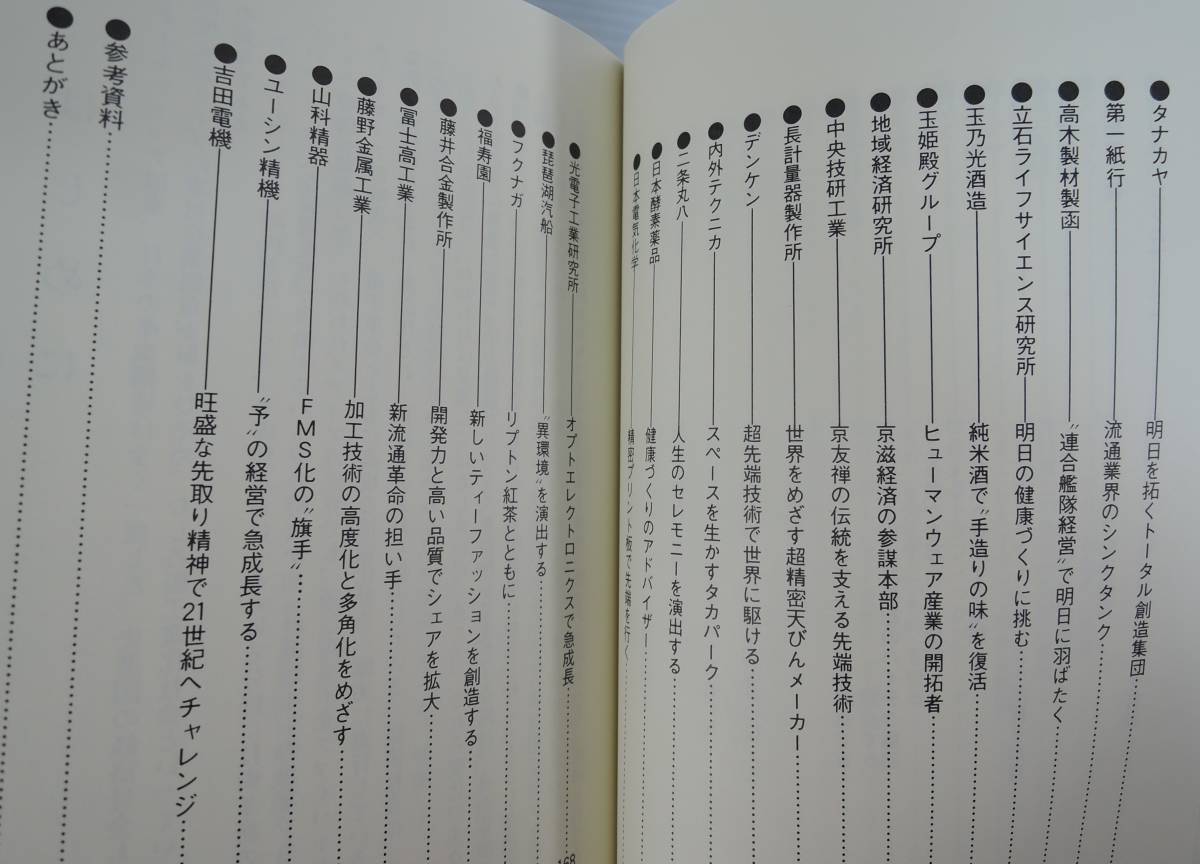 ●タナカヤ――明日を拓くトータル創造集団
●第一紙行――流通業界のシンクタンク
●高木製材製函――〝連合艦隊経営〟で明日に羽ばたく
●立石ライフサイエンス研究所――明日の健康づくりに挑む
●玉乃光酒造――純米酒で〝手造りの味〟を復活
●玉姫殿グループ――ヒューマンウェア産業の開拓者
●地域経済研究所――京滋経済の参謀本部
●中央技研工業――京友禅の伝統を支える先端技術
●長計量器製作所――世界をめざす超精密天びんメーカー
●デンケン――超先端技術で世界に駆ける
●内外テクニカ――スペースを生かすタカパーク
●二条丸八――人生のセレモニーを演出する
●日本酵素薬品――健康づくりのアドバイザー
●日本電気化学――精密プリント板で先端を行く
●光電子工業研究所――オプトエレクトロニクスで急成長
●琵琶湖汽船――〝異環境〟を演出する
●フクナガ――リプトン紅茶とともに
●福寿園――新しいティーファッションを創造する
●藤井合金製作所――開発力と高い品質でシェアを拡大
●冨士高工業――新流通革命の担い手
●藤野金属工業――加工技術の高度化と多角化をめざす
●山科精器――FMS化の〝旗手〟
●ユーシン精機――〝予〟の経営で急成長する
●吉田電機――旺盛な先取り精神で21世紀へチャレンジ
●参考資料
●あとがき
168